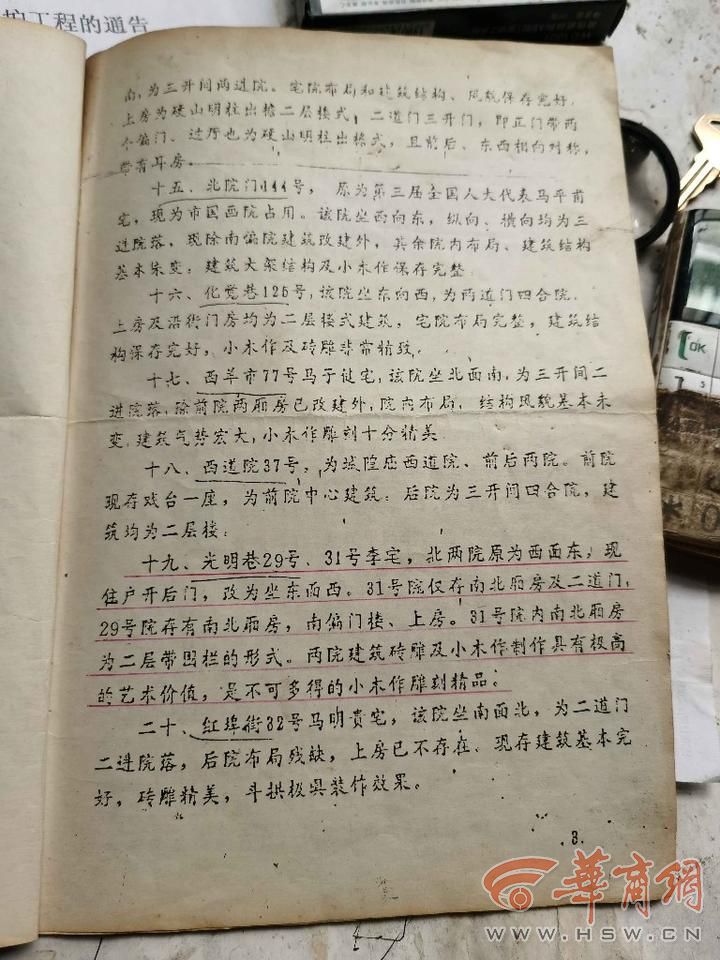 护工程的通告
南,为三开间两进院。宅院布局和建筑结构、风貌保存完好,
上房为硬山明柱出檐二层楼式,二道门三开门,即正门带两
个偏门、过厅也为硬山明柱出檐式,且前后、东西相向对称,
带有耳房。
十五、北院门144号,原为第三届全国人大代表马平甫
宅,现为市国画院占用。该院坐西向东,纵向、横向均为三
进院落,现除南偏院建筑改建外,其余院内布局、建筑结构
基本未变;建筑大架结构及小木作保存完整。
十六、化觉巷125号,该院坐东向西,为两道门四合院。
上房及沿街门房均为二层楼式建筑,宅院布局完整,建筑结
构保存完好,小木作及砖雕非常精致。
十七、西羊市77号马于健宅,该院坐北面南,为三开间二
进院落,除前院两厢房已改建外,院内布局,结构风貌基本未
变,建筑气势宏大,小木作雕刻十分精美。
十八、西道院37号,为城隍庙西道院、前后两院。前院
现存戏台一座,为前院中心建筑;后院为三开间四合院,建
筑均为二层楼;
十九、光明巷29号、31号李宅,北两院原为西面东,现
住户开后门,改为坐东面西。31号院仅存南北厢房及二道门;
29号院存有南北厢房,南偏门楼、上房。31号院内南北厢房
为二层带围栏的形式。两院建筑砖雕及小木作制作具有极高
的艺术价值,是不可多得的小木作雕刻精品;
二十、红埠街32号马明贵宅,该院坐南面北,为二道门
二进院落,后院布局残缺,上房已不存在、现存建筑基本完
好,砖雕精美,斗拱极具装作效果。
3.
OK
华商网
WWW.HSW.CN